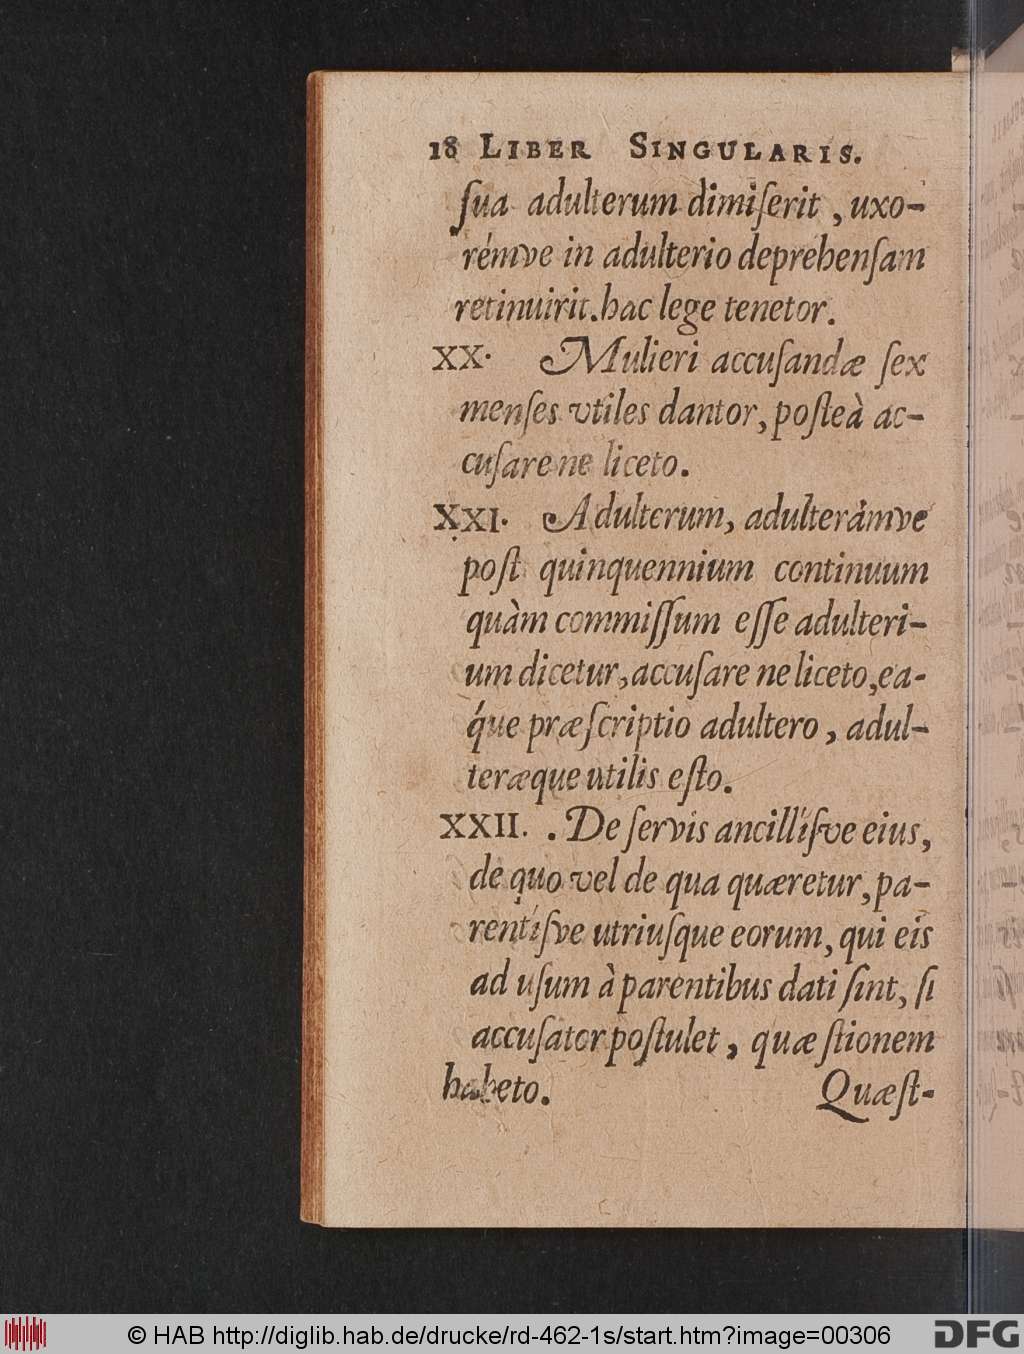 18 LIBER SINGULARIS.
ſua adulterum dimiſerit, uxo-
rémve in adulterio deprehenſam
retinuirit. hac lege tenetor.
XX. Mulieri accuſandæ ſex
menſes vtiles dantor, poſteà ac-
cuſare ne liceto.
XXI. Adulterum, adulterámve
poſt quinquennium continuum
quàm commiſſum eſſe adulteri-
um dicetur, accuſare ne liceto, ea-
q́ue præſcriptio adultero, adul-
teræque utilis eſto.
XXII. . De ſervis ancillíſve eius,
de quo vel de qua quæretur, pa-
rentíſve utriuſque eorum, qui eis
ad uſum à parentibus dati ſint, ſi
accuſator poſtulet, quæſtionem
habeto. Quæſt-
© HAB http://diglib.hab.de/drucke/rd-462-1s/start.htm?image=00306
DFG